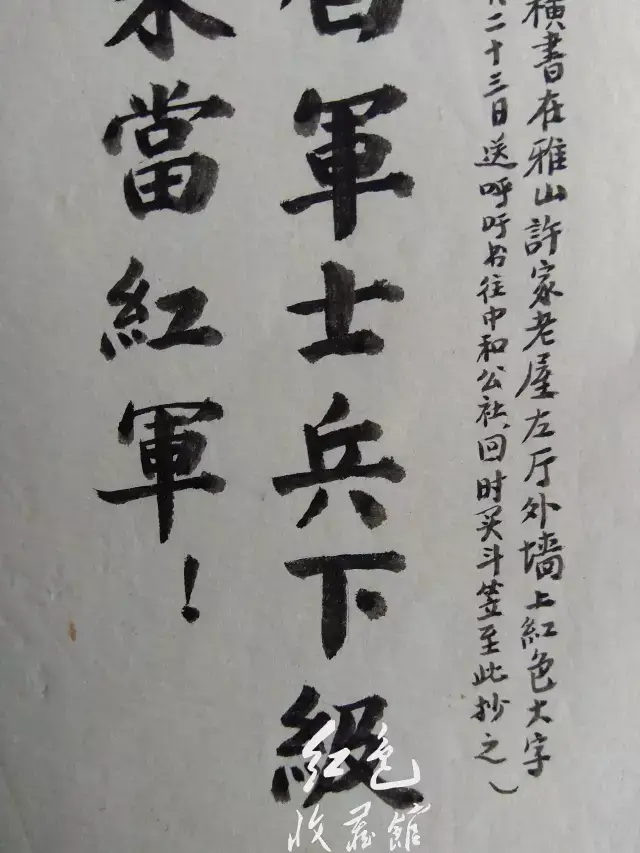 橫書在雅山許家老屋左厅外墙上紅色大字
二十三日送呼吁书往中和公社,回时买斗笠至此抄之)
軍士兵下級
當紅軍!
红色
收藏館